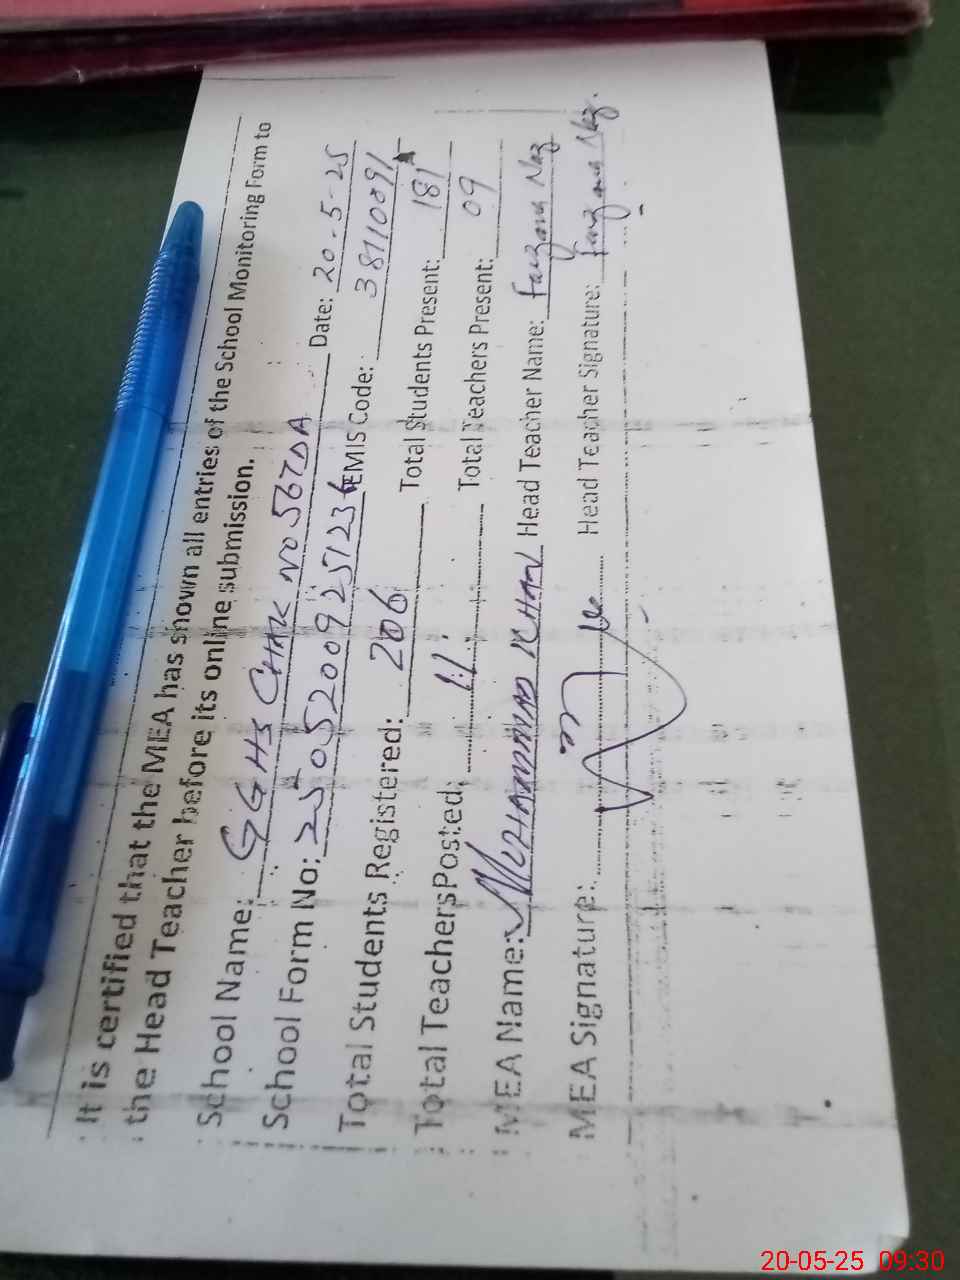 It is certified that the MEA has shown all entries of the School Monitoring Form to
the Head Teacher before its online submission.
School Name: GGHS CHAK NO 567DA Date: 20-5-25
School Form No: 25052009251236 EMIS Code: 38110091
Total Students Registered: 206 Total Students Present: 181
Total TeachersPosted: 11 Total Teachers Present: 09
MEA Name: MUHAMMAD KHAN Head Teacher Name: Faizana Naz
MEA Signature: Head Teacher Signature: Faizana Naz.
20-05-25 09:30